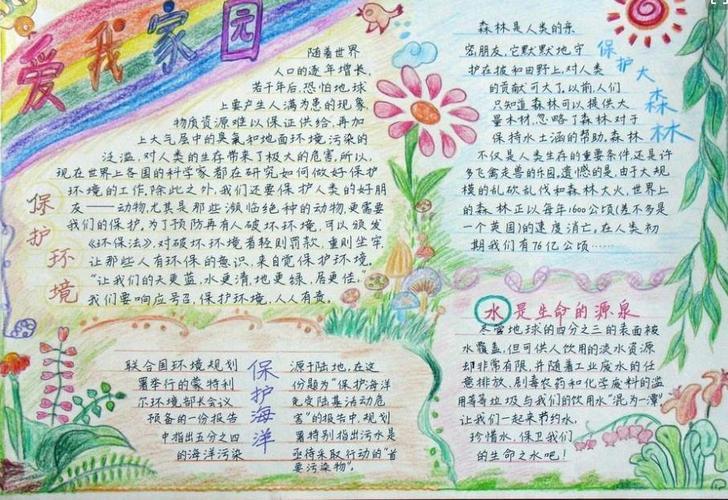 爱我家园
随着世界
人口的逐年增长,
若干年后,恐怕地球
上要产生人满为患的现象,
物质资源难以保证供给,再加
上大气层中的臭氧和地面环境污染的
泛滥,对人类的生存带来了极大的危害,所以,
现在世界上各国的科学家都在研究如何做好保护
环境的工作,除此之外,我们还要保护人类的好朋
友——动物,尤其是那些濒临绝种的动物,更需要
我们的保护,为了预防再有人破坏环境,可以颁发
《环保法》,对破坏环境者轻则罚款,重则坐牢,
让那些人有环保的意识,来自觉保护环境.
“让我们的天更蓝,水更清,地更绿,居更佳,”
我们要响应号召,保护环境,人人有责.
保护环境
森林是人类的亲
密朋友,它默默地守
护在坡和田野上,对人类
的贡献可大了,以前,人们
只知道森林可以提供大
量木材,忽略了森林对于
保持水土涵的帮助,森林
不仅是人类生存的重要条件,还是许
多飞禽走兽的乐园,遗憾的是,由于大规
模的乱砍乱伐和森林大火,世界上
的森林正以每年1600公顷(差不多是
一个英国)的速度消亡,在人类初
期我们有76亿公顷……
保护大森林
联合国环境规划
署举行的蒙特利
尔环境部长会议
预备的一份报告
中指出五分之四
的海洋污染
保护海洋
源于陆地,在这
份题为“保护海洋
免受陆基活动危
害”的报告中,规划
署特别指出污水是
亟待采取行动的“首
要污染物”.
水是生命的源泉
尽管地球的四分之三的表面被
水覆盖,但可供人饮用的淡水资源
却非常有限,并随着工业废水的任
意排放,剧毒农药和化学废料的滥
用等等垃圾与我们的饮用水“混为一潭”
让我们一起来节约水,
珍惜水,保卫我们
的生命之水吧!